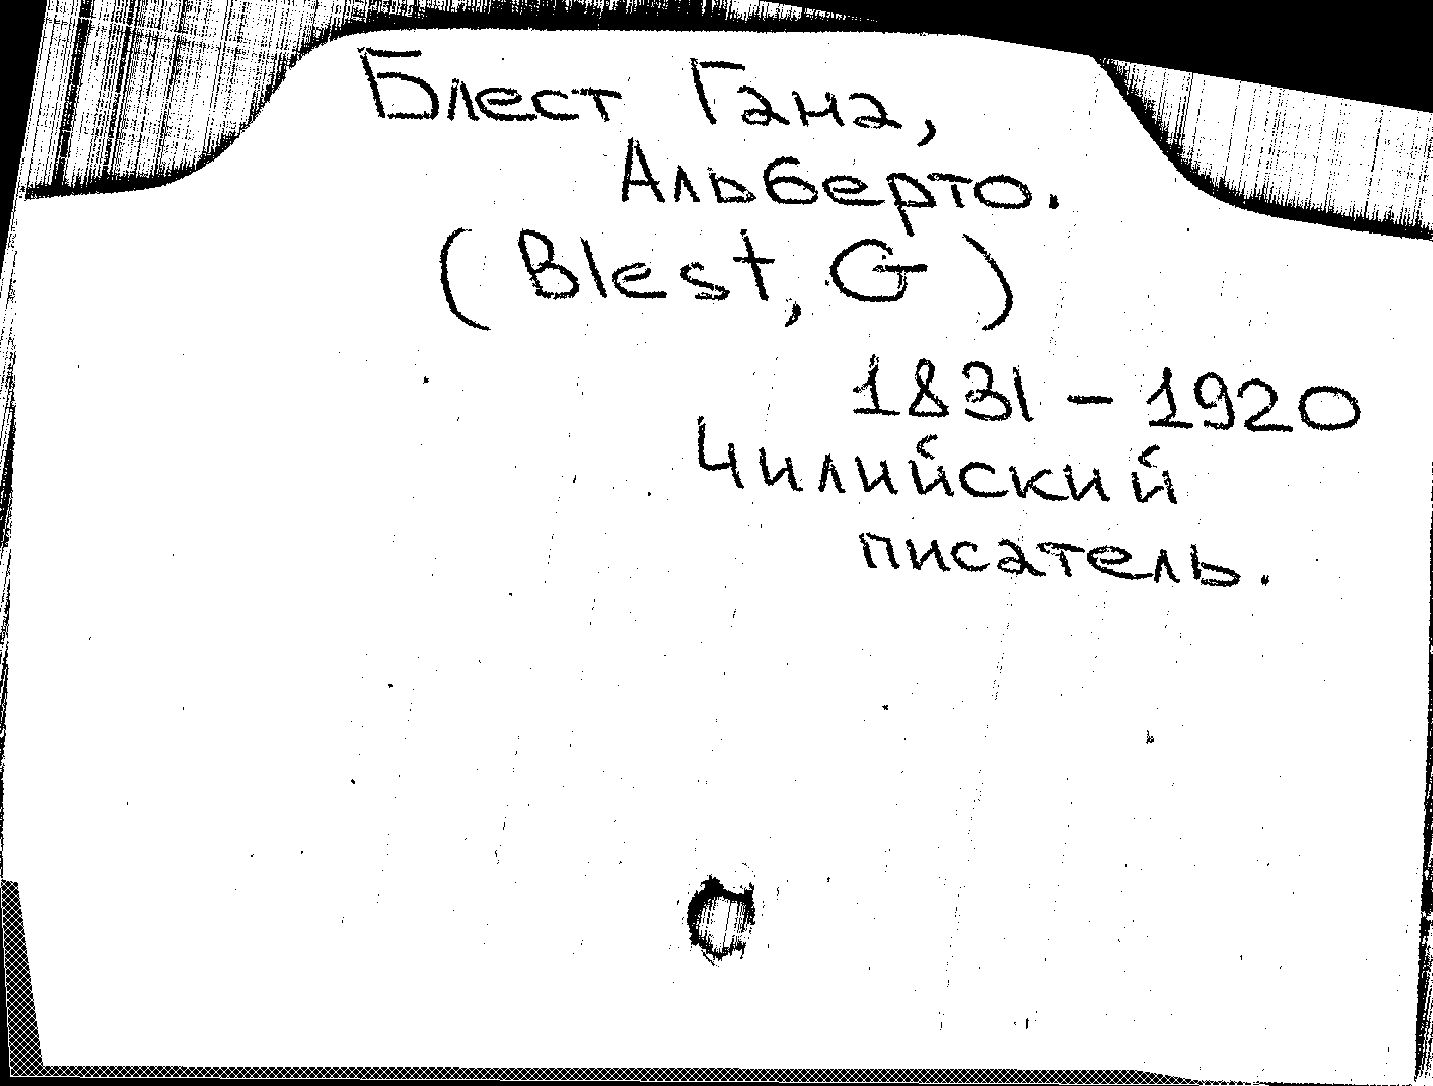 Блест Гана,
Альберто.
(Blest, G)
1831 - 1920
Чилийский
писатель.